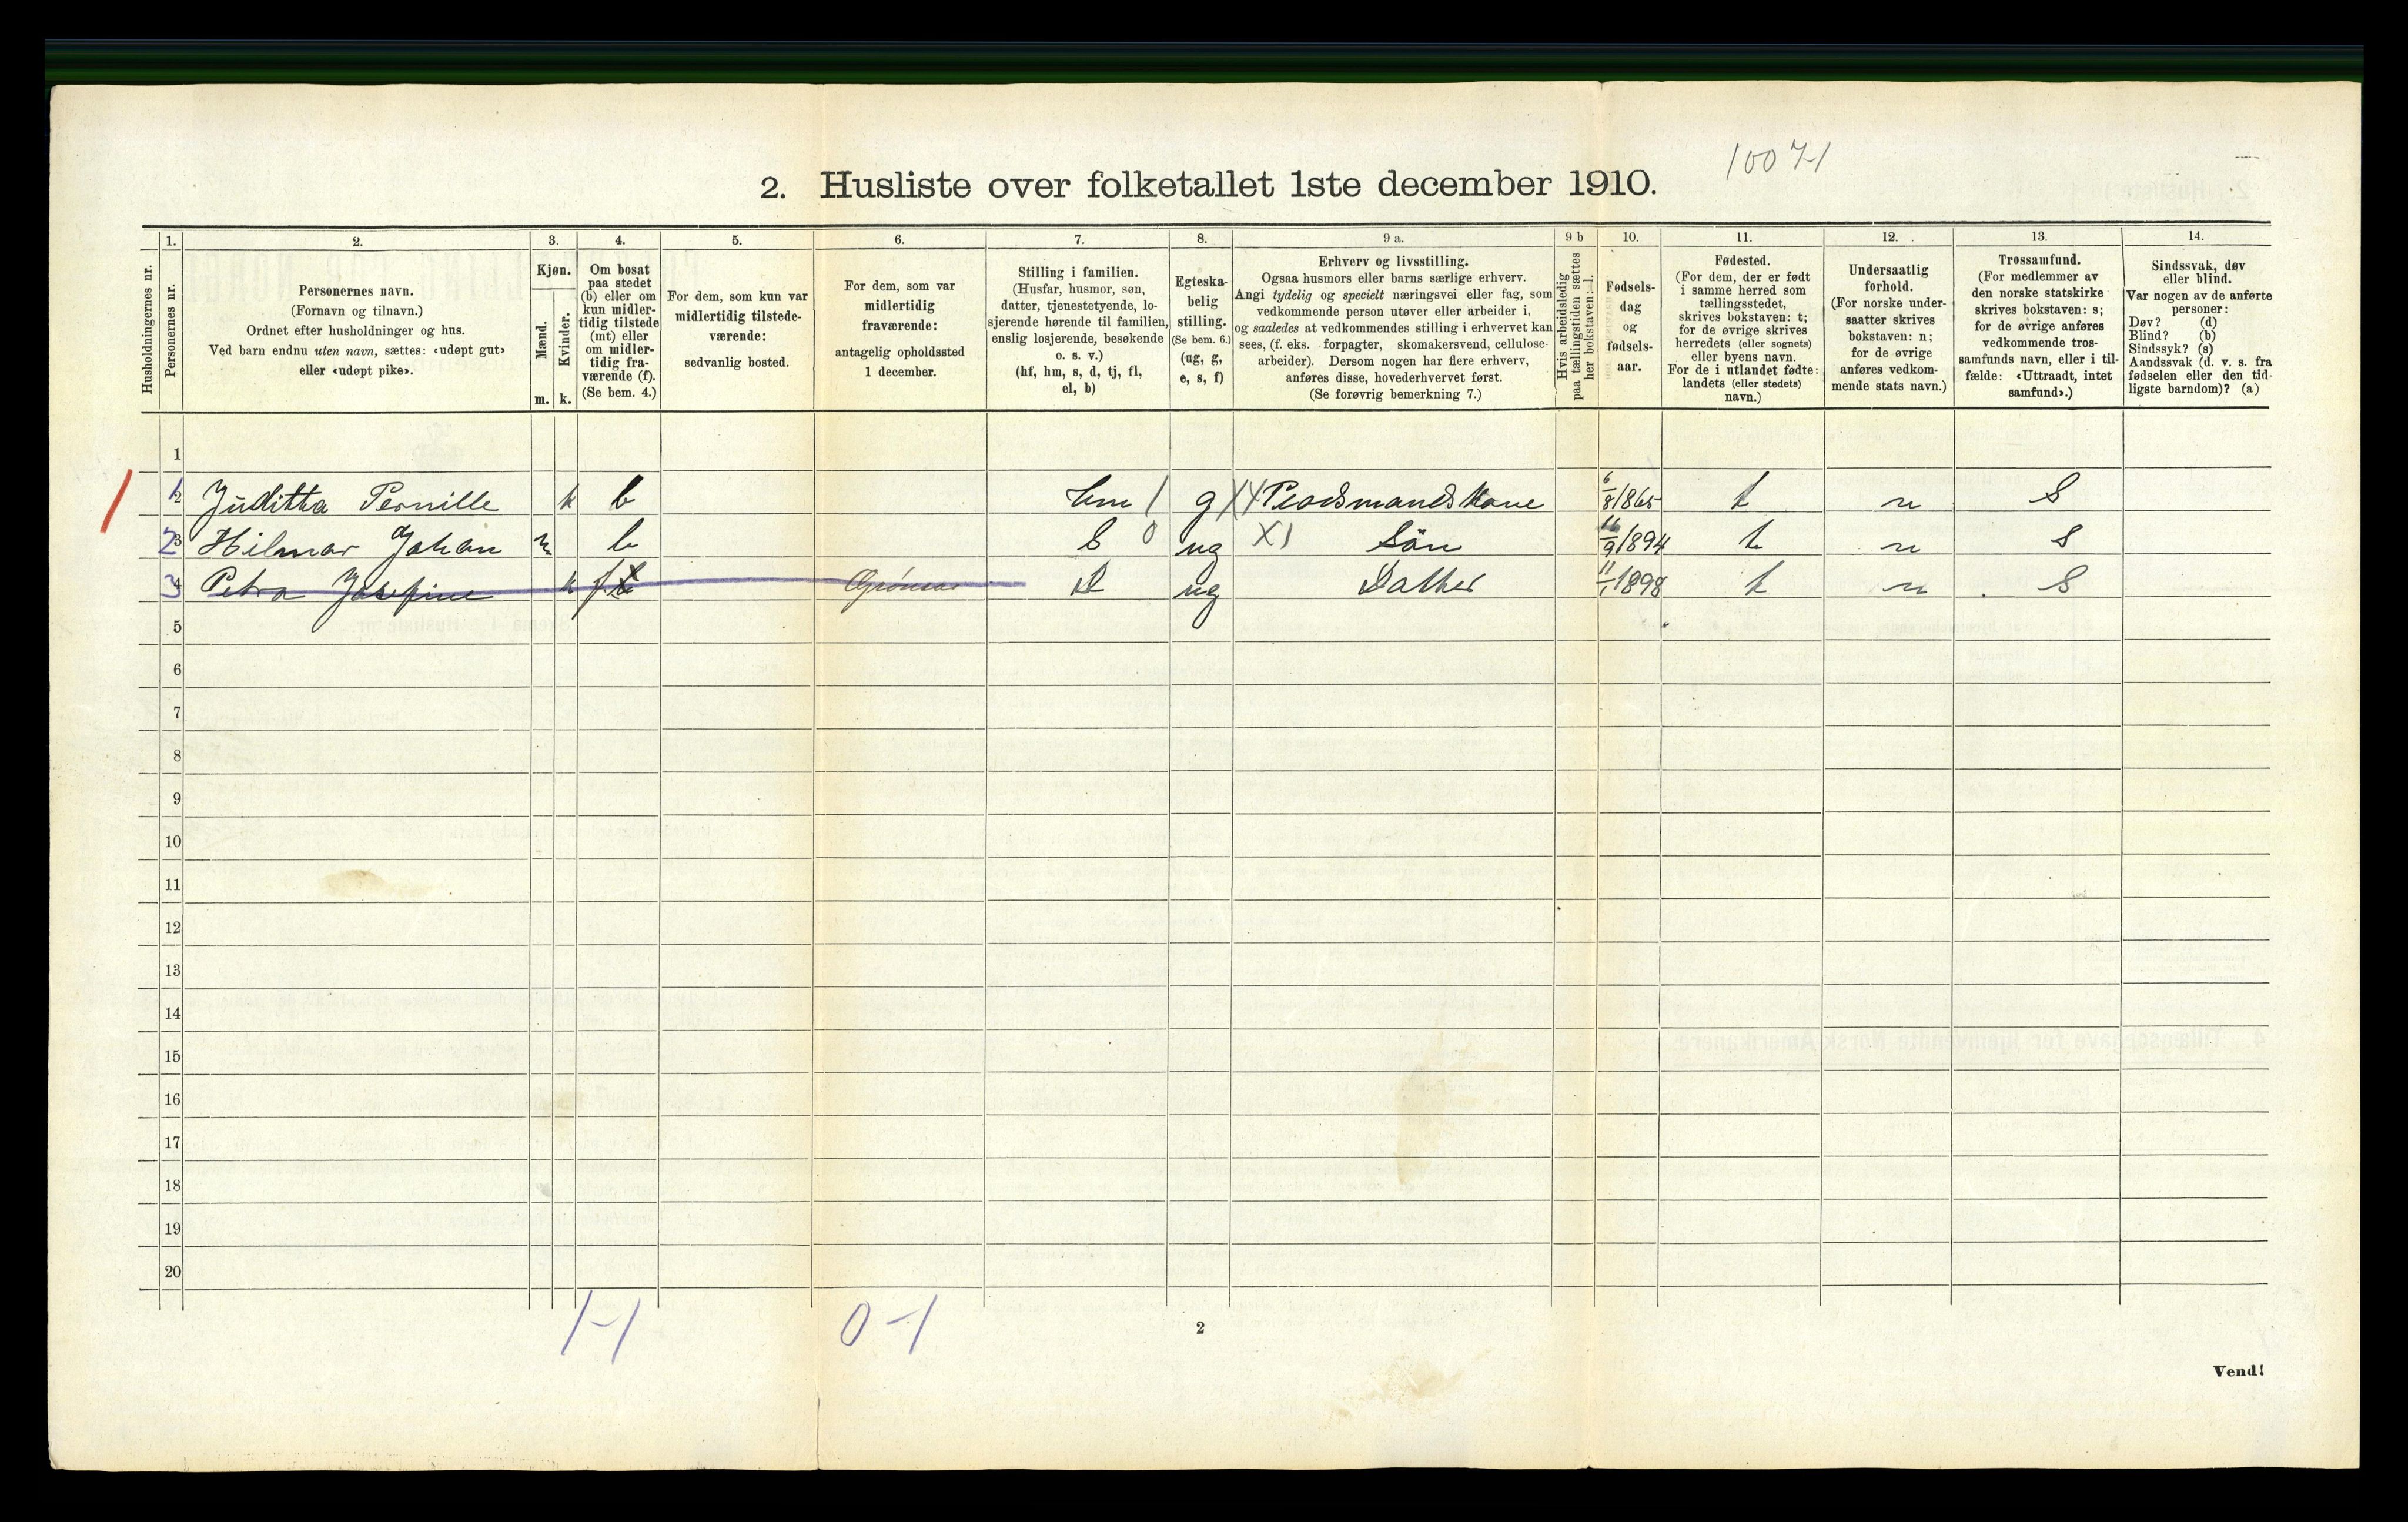 10071
2. Husliste over folketallet 1ste december 1910.
Husholdningernes nr.
1. Personernes nr.
2. Personernes navn. (Fornavn og tilnavn.) Ordnet efter husholdninger og hus. Ved barn endnu uten navn, sættes: «udøpt gut» eller «udøpt pike».
3. Kjøn. Mænd. m. Kvinder. k.
4. Om bosat paa stedet (b) eller om kun midlertidig tilstede (mt) eller om midlertidig fraværende (f). (Se bem. 4.)
5. For dem, som kun var midlertidig tilstedeværende: sedvanlig bosted.
6. For dem, som var midlertidig fraværende: antagelig opholdssted 1 december.
7. Stilling i familien. (Husfar, husmor, søn, datter, tjenestetyende, losjerende hørende til familien, enslig losjerende, besøkende o. s. v.) (hf, hm, s, d, tj, fl, el, b)
8. Egteskabelig stilling. (Se bem. 6.) (ug, g, e, s, f)
9 a. Erhverv og livsstilling. Ogsaa husmors eller barns særlige erhverv. Angi tydelig og specielt næringsvei eller fag, som vedkommende person utøver eller arbeider i, og saaledes at vedkommendes stilling i erhvervet kan sees, (f. eks. forpagter, skomakersvend, cellulosearbeider). Dersom nogen har flere erhverv, anføres disse, hovederhvervet først. (Se forøvrig bemerkning 7.)
9 b Hvis arbeidsledig paa tællingstiden sættes her bokstaven: l.
10. Fødselsdag og fødselsaar.
11. Fødested. (For dem, der er født i samme herred som tællingsstedet, skrives bokstaven: t; for de øvrige skrives herredets (eller sognets) eller byens navn. For de i utlandet fødte: landets (eller stedets) navn.)
12. Undersaatlig forhold. (For norske undersaatter skrives bokstaven: n; for de øvrige anføres vedkommende stats navn.)
13. Trossamfund. (For medlemmer av den norske statskirke skrives bokstaven: s; for de øvrige anføres vedkommende trossamfunds navn, eller i tilfælde: «Uttraadt, intet samfund».)
14. Sindssvak, døv eller blind. Var nogen av de anførte personer: Døv? (d) Blind? (b) Sindssyk? (s) Aandssvak (d. v. s. fra fødselen eller den tidligste barndom)? (a)
1
1 2 Juditha Pernille k b hm 1 g X4 Plassmands Kone 6/8 1865 t n S
2 3 Hilmar Johan m b S 0 ug X1 Sön 11/9 1894 t n S
3 4 Petra Josefine k f D ug Datter 11/1 1898 t n S
5
6
7
8
9
10
11
12
13
14
15
16
17
18
19
20
1-1 0-1
2
Vend!